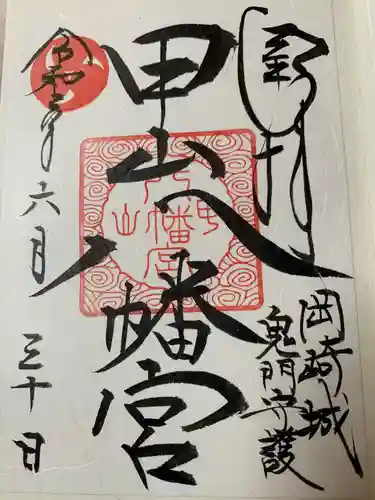 奉拝
岡崎城
鬼門守護
甲山八幡宮
令和三年六月三十日